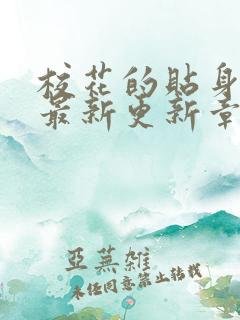 校花的贴身
最新更新章
亚芜杂
未经同意禁止转载